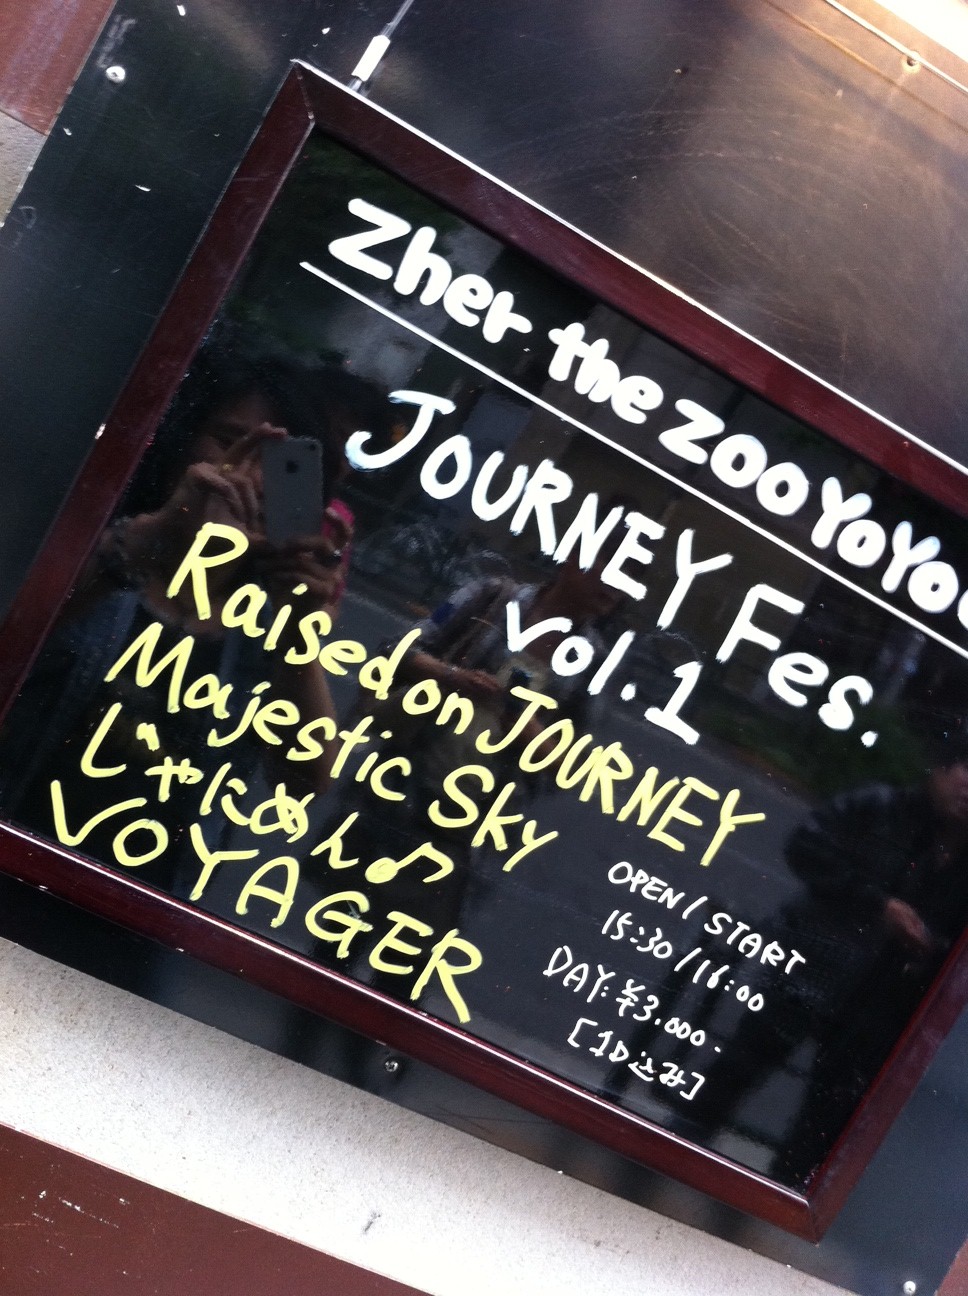 Zher the ZOO YOYO
JOURNEY Fes.
vol.1
Raised on JOURNEY
Majestic Sky
じゃにめん♫
VOYAGER
OPEN / START
15:30 / 16:00
DAY: ¥3,000-
[1D込み]